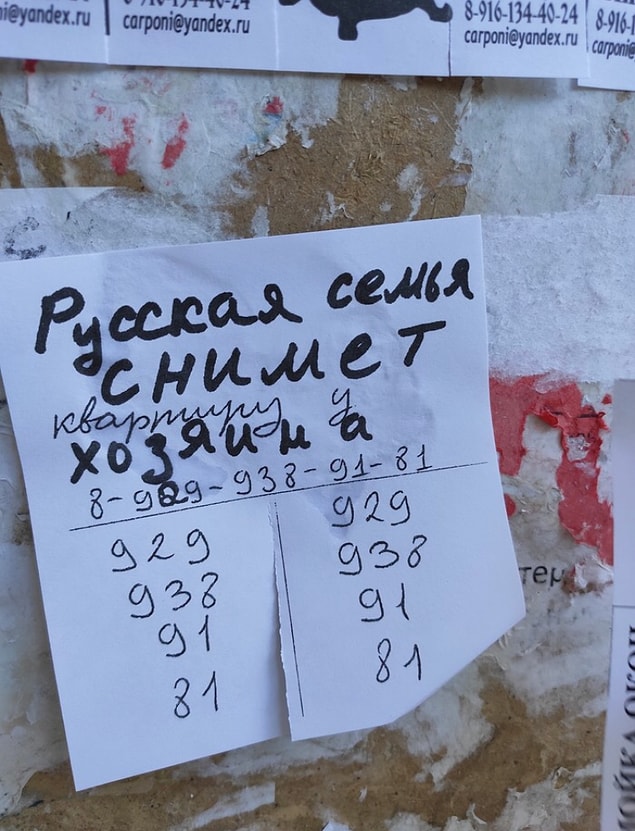 8-916-134-40-24
i@yandex.ru
carponi@yandex.ru
8-916-134-40-24
carponi@yandex.ru
8-916-1
carponi@
Русская семья
снимет
квартиру у
хозяина
8-929-938-91-81
929
938
91
81
929
938
91
81